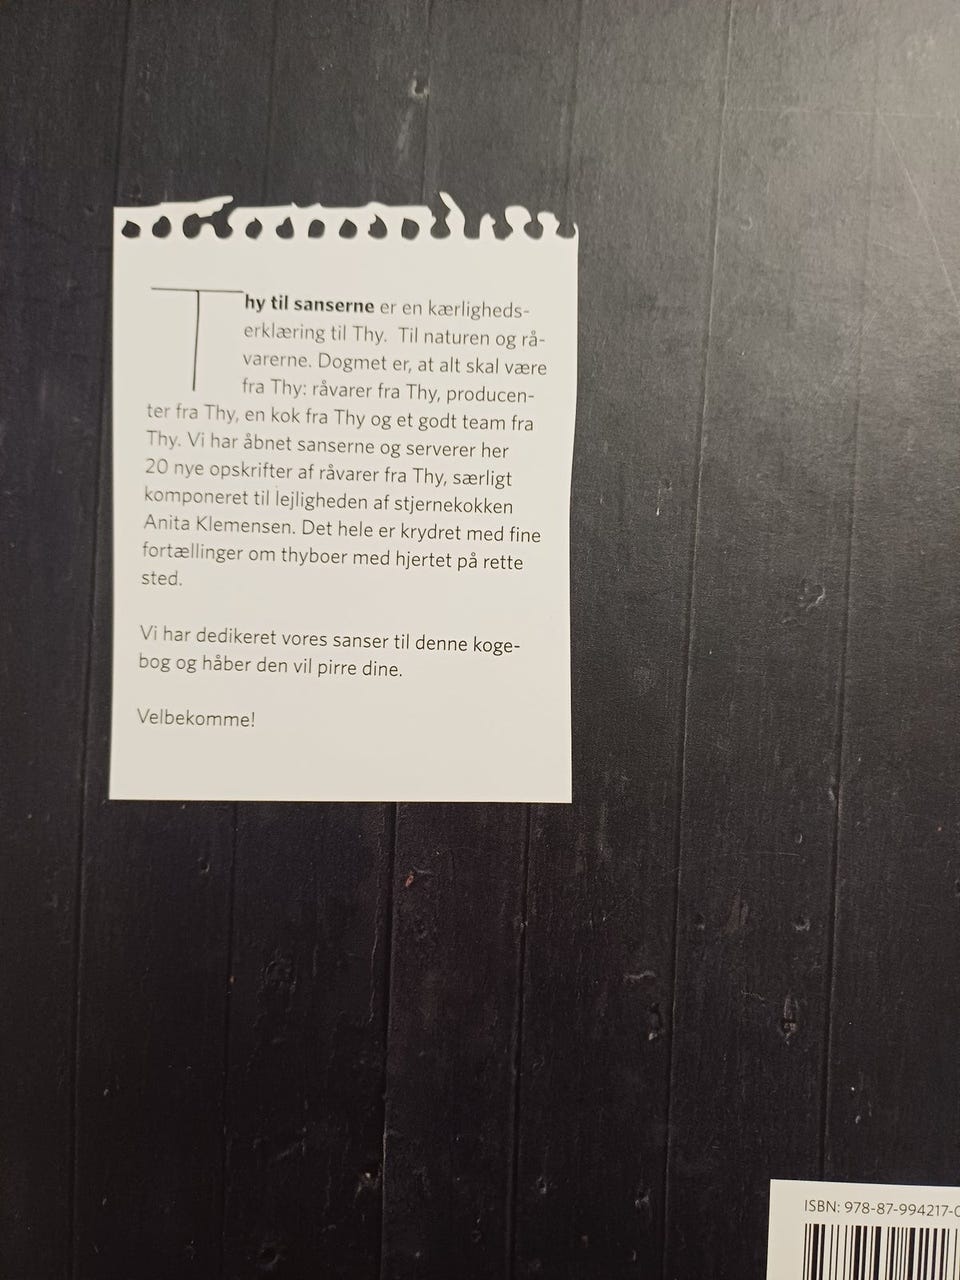 Thy til sanserne er en kærligheds-
erklæring til Thy. Til naturen og rå-
varerne. Dogmet er, at alt skal være
fra Thy: råvarer fra Thy, producen-
ter fra Thy, en kok fra Thy og et godt team fra
Thy. Vi har åbnet sanserne og serverer her
20 nye opskrifter af råvarer fra Thy, særligt
komponeret til lejligheden af stjernekokken
Anita Klemensen. Det hele er krydret med fine
fortællinger om thyboer med hjertet på rette
sted.
Vi har dedikeret vores sanser til denne koge-
bog og håber den vil pirre dine.
Velbekomme!
ISBN: 978-87-994217-